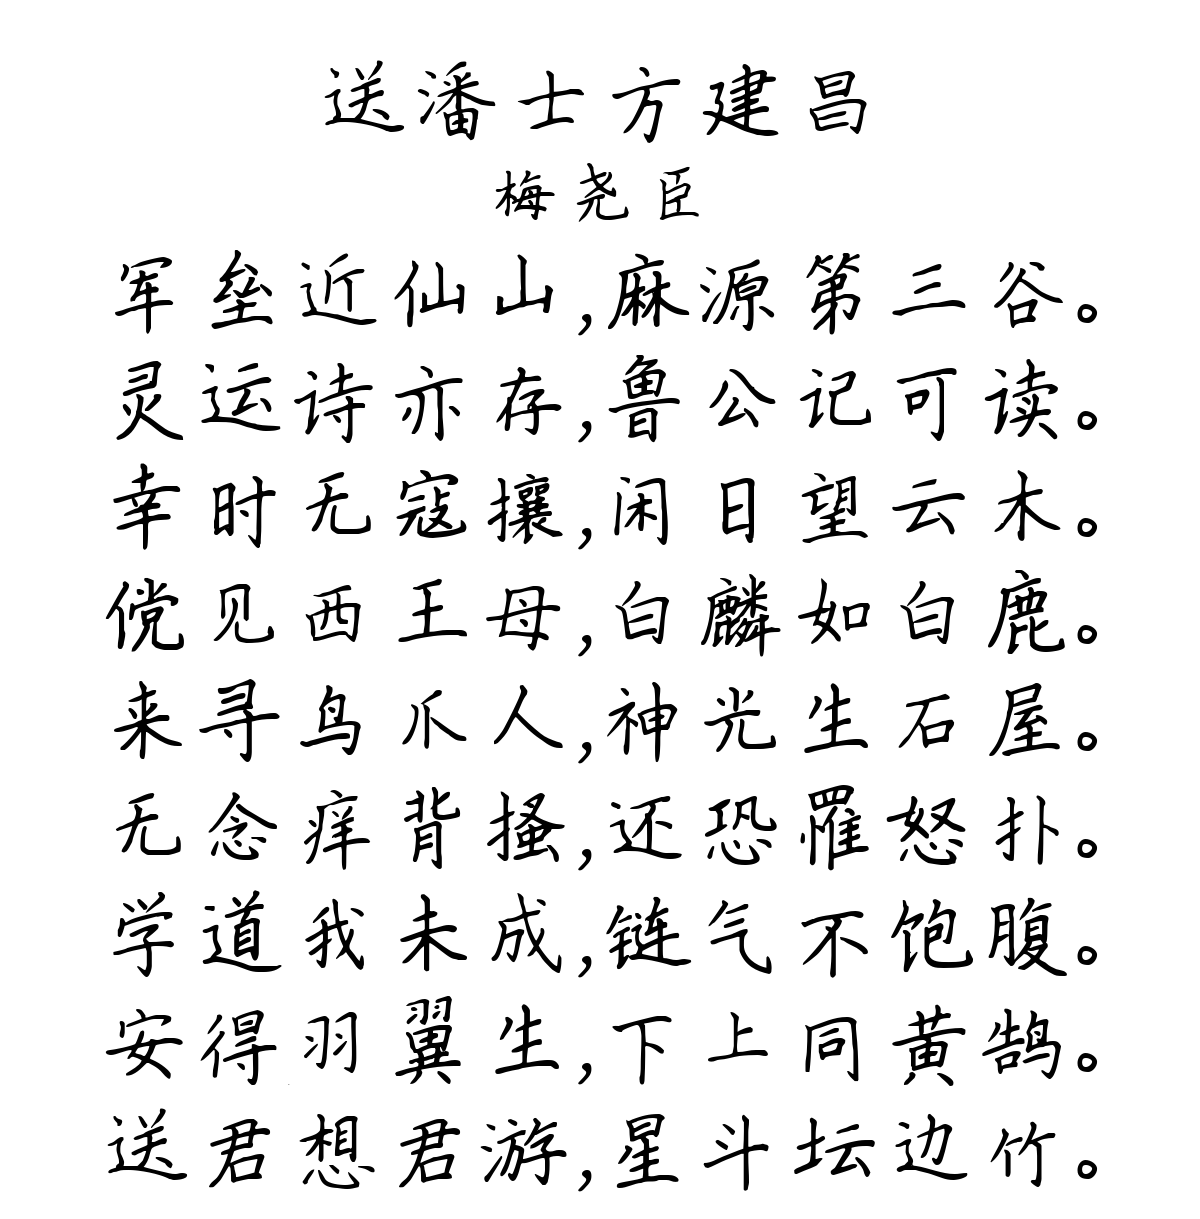 送潘士方建昌
梅尧臣
军垒近仙山,麻源第三谷。
灵运诗亦存,鲁公记可读。
幸时无寇攘,闲日望云木。
傥见西王母,白麟如白鹿。
来寻鸟爪人,神光生石屋。
无念痒背搔,还恐罹怒扑。
学道我未成,链气不饱腹。
安得羽翼生,下上同黄鹄。
送君想君游,星斗坛边竹。